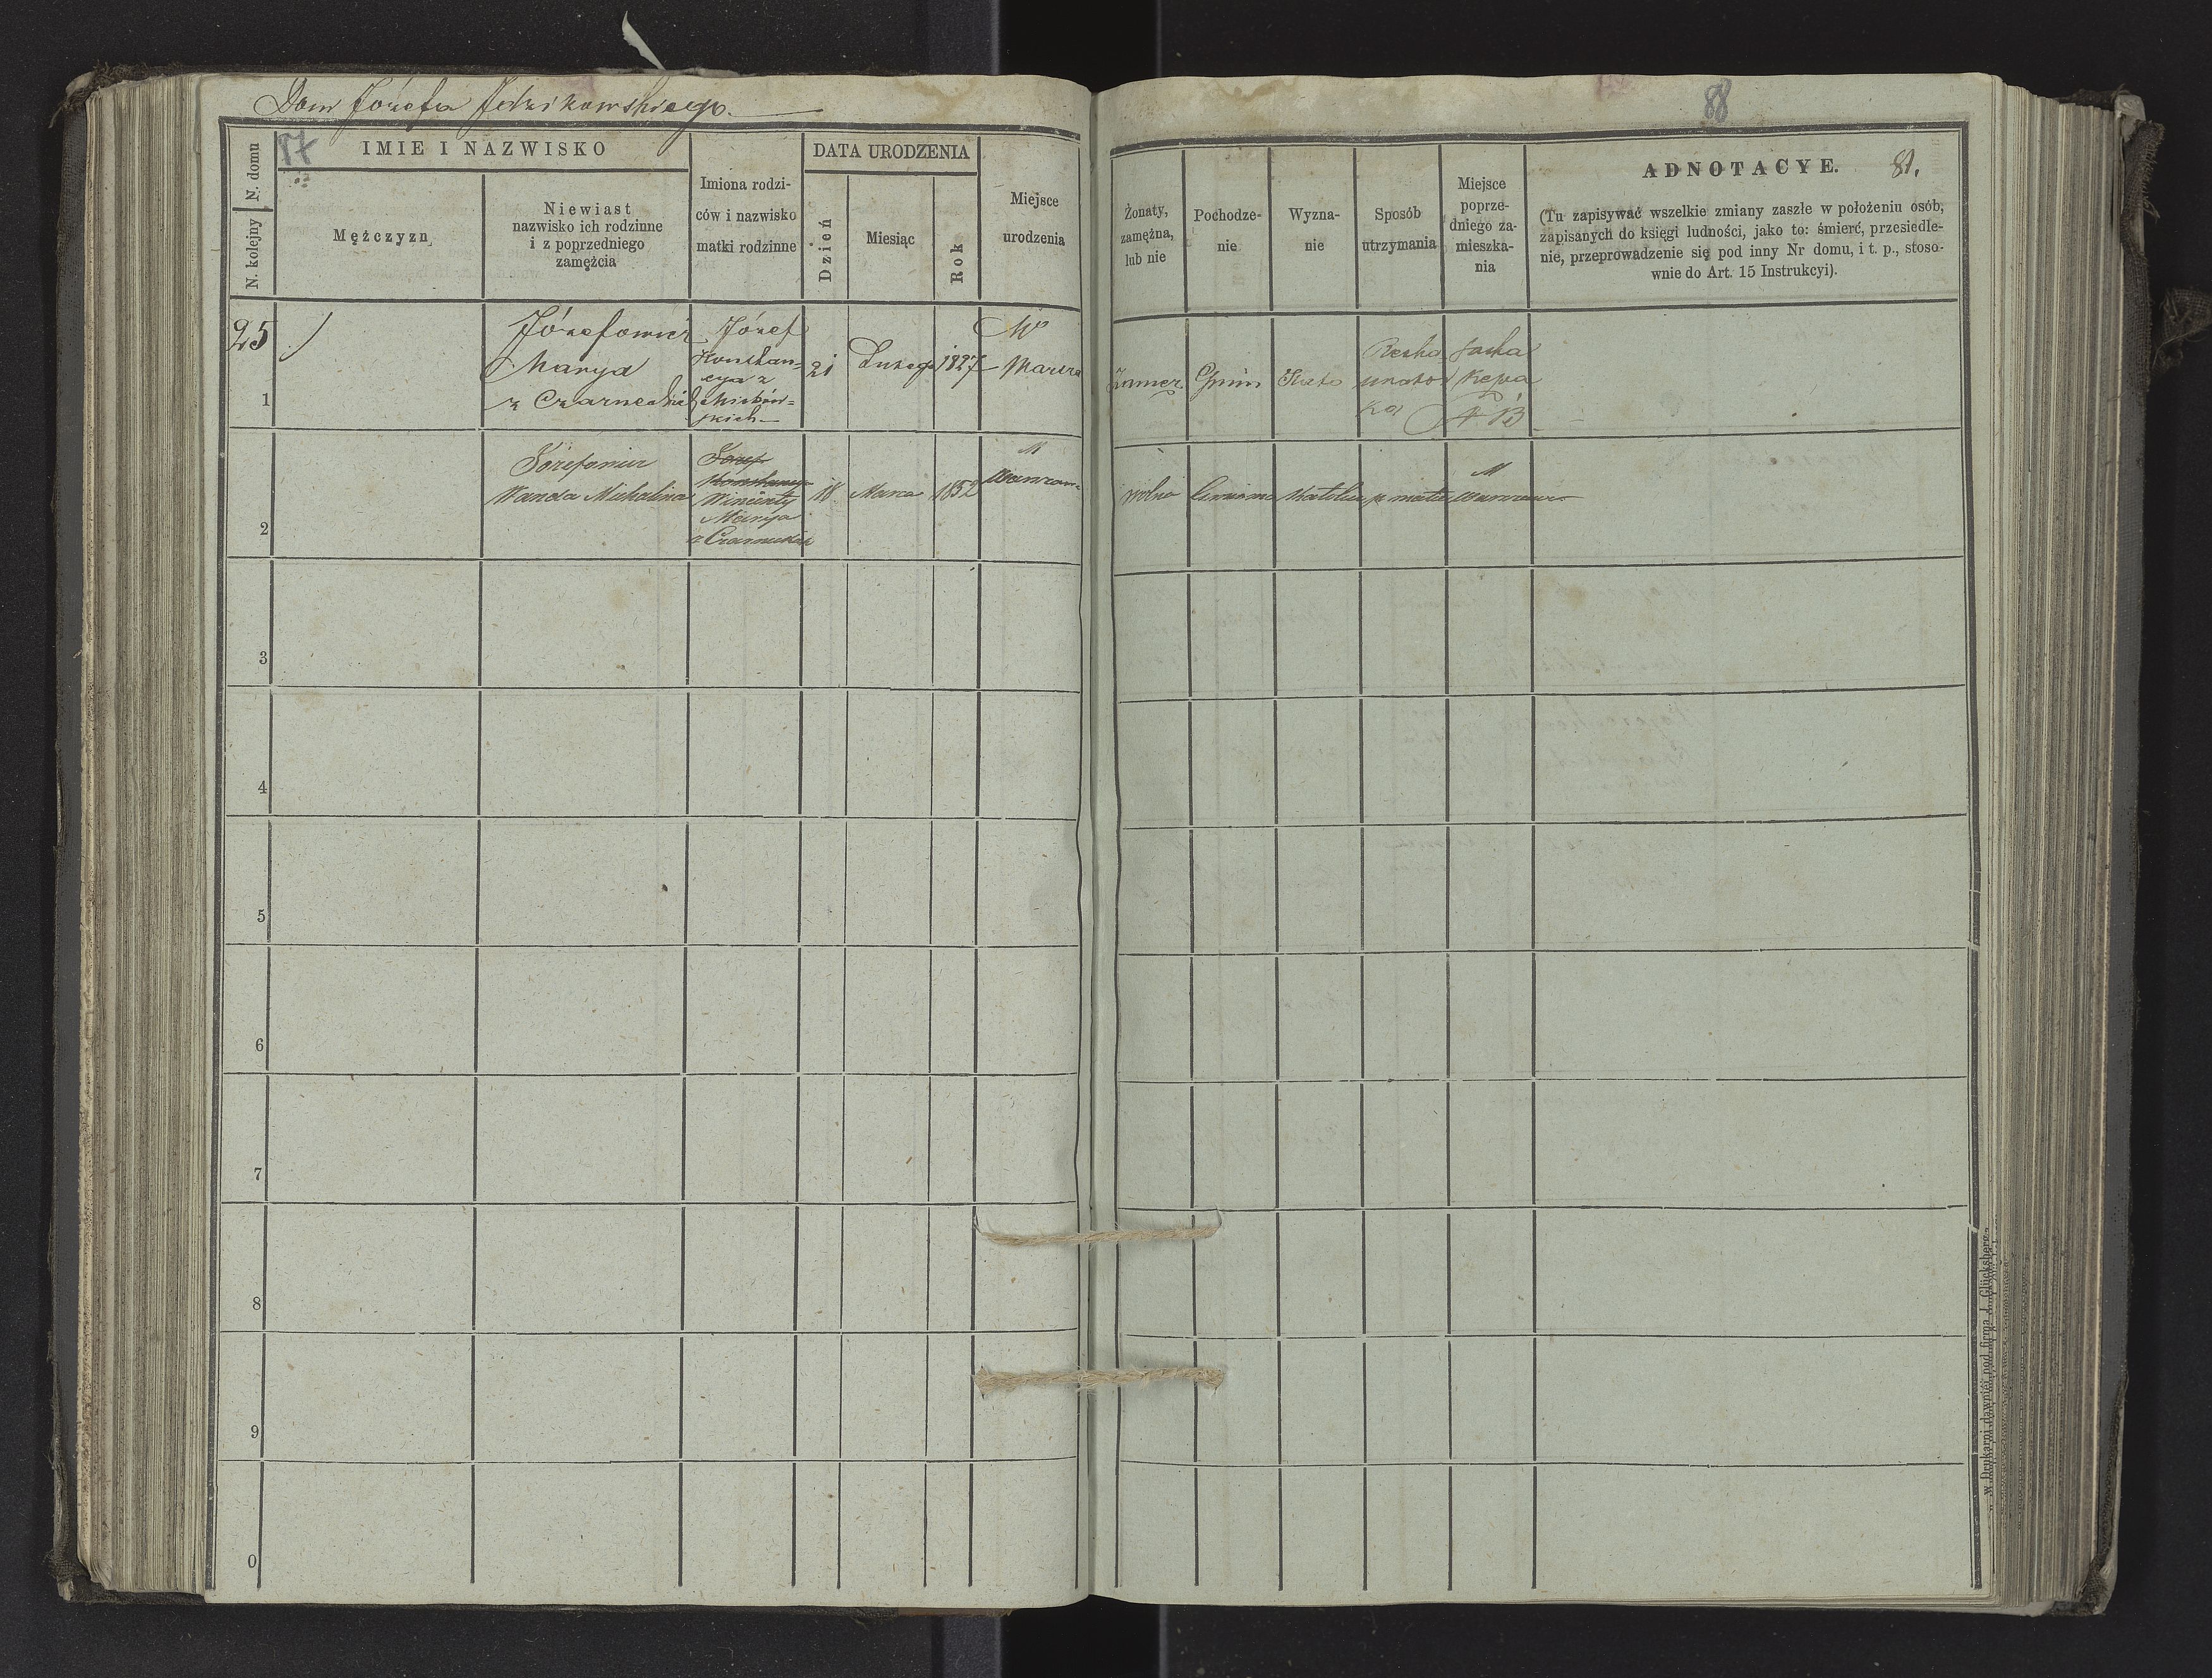 Dom Józefa Jedzikowskiego.
87
N. domu
N. kolejny
IMIE I NAZWISKO
Mężczyzn
Niewiast
nazwisko ich rodzinne
i z poprzedniego
zamężcia
Imiona rodzi-
ców i nazwisko
matki rodzinne
DATA URODZENIA
Dzień
Miesiąc
Rok
Miejsce
urodzenia
25
1
Józefowicz
Marya
z Czarneckich
Józef
Konstan-
cya z
21
Lutego
1827
W
2
Józefowicz
Wanda Michalina
Józef
Konstancya
Wincenty
Marya
z Czarneckich
18
Marca
1852
M
Warszawa
3
4
5
6
7
8
9
0
88
Żonaty,
zamężna,
lub nie
Pochodze-
nie
Wyzna-
nie
Sposób
utrzymania
Miejsce
poprze-
dniego za-
mieszka-
nia
ADNOTACYE. 81.
(Tu zapisywać wszelkie zmiany zaszłe w położeniu osób,
zapisanych do księgi ludności, jako to: śmierć, przesiedle-
nie, przeprowadzenie się pod inny Nr domu, i t. p., stoso-
wnie do Art. 15 Instrukcyi).
Zamęż
Gmin
Kato
Saska
Kępa
wolna
Katolic
p matce
M
Warszawa
w Drukarni dawniéj pod firmą J. Glücksberga